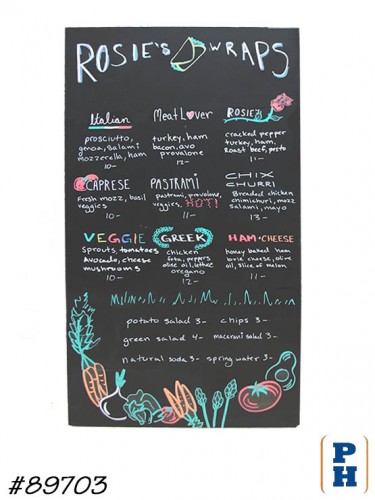 ROSIE'S WRAPS
Italian
prosciutto,
genoa, salami
mozzerella, ham
10-
Meat Lover
turkey, ham
bacon, avo
provalone
12-
ROSIE'S
cracked pepper
turkey, ham,
Roast beef, pesto
11-
CAPRESE
Fresh mozz, basil
veggies
10-
PASTRAMI
pastrami, provolone,
veggies, HOT!
11-
CHIX
CHURRI
Breaded chicken
chimichuri, mozz
salami, mayo
13-
VEGGIE
Sprouts, tomatoes
Avocado, cheese
mushrooms
10-
GREEK
chicken
feta, peppers
olive oil, lettuce
oregano
12-
HAM & CHEESE
honey baked ham
brie cheese, olive
oil, slice of melon
11-
potato salad 3-
chips 3-
green salad 4-
macaroni salad 3-
natural soda 3-
spring water 3-
#89703
PH